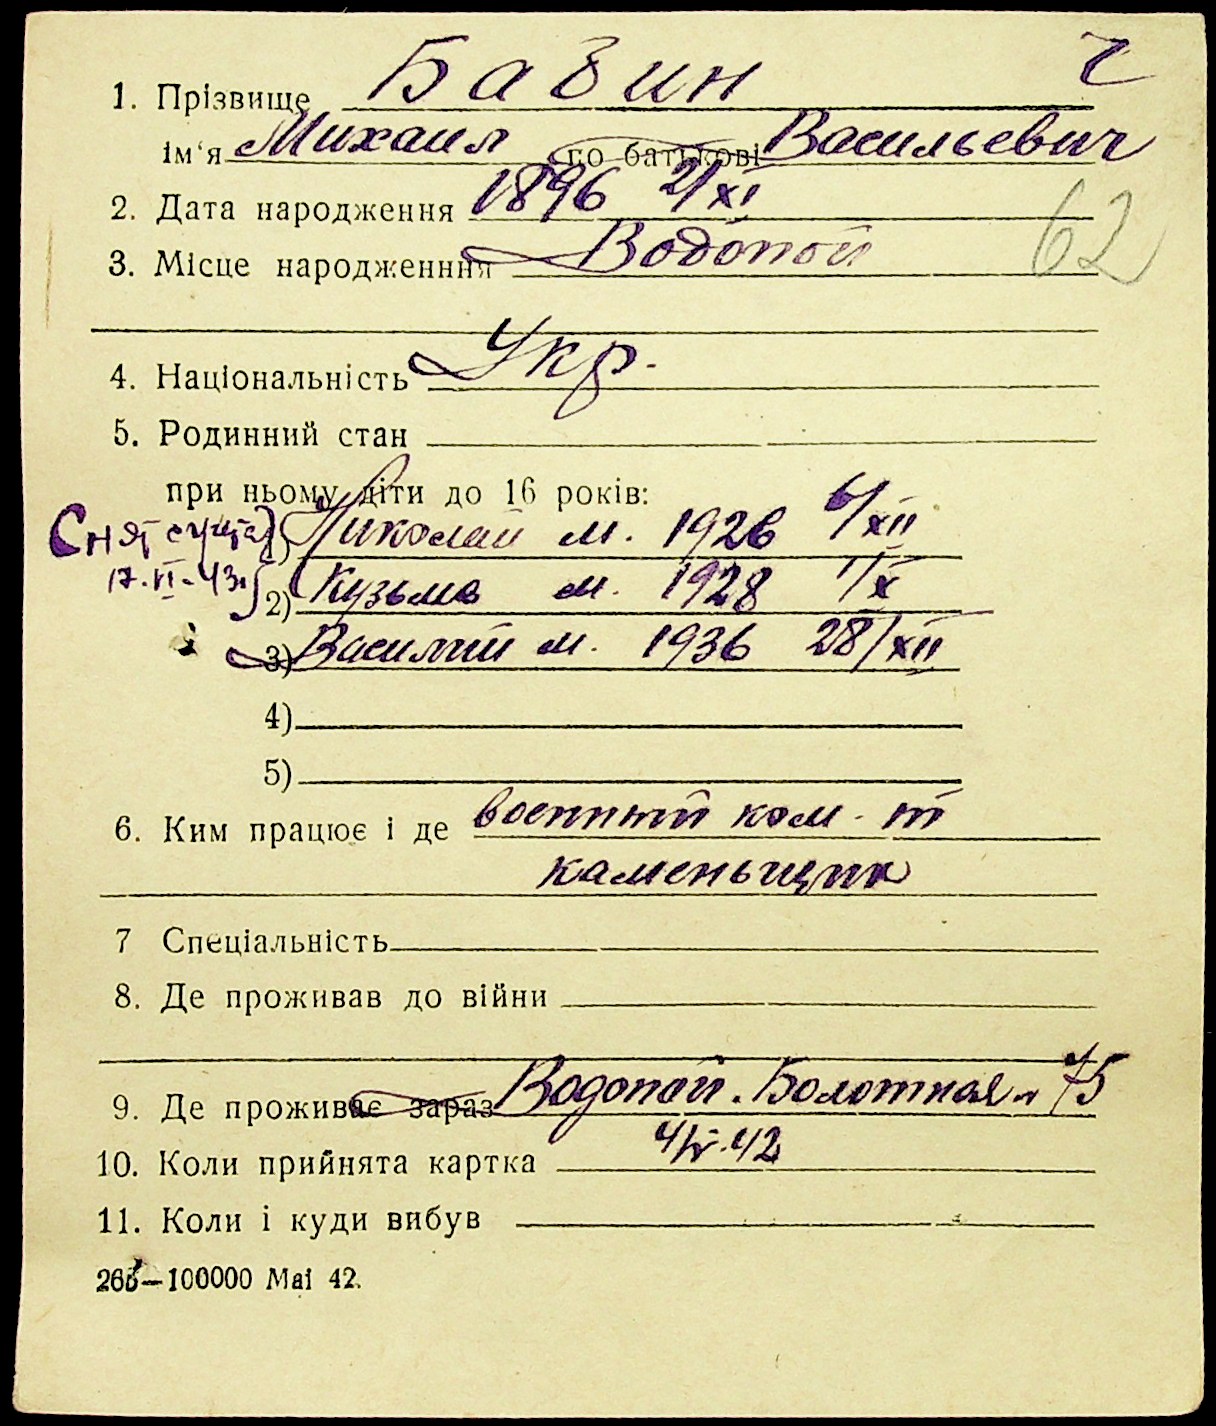 1. Прізвище Бабин Ч
ім'я Михаил по батькові Васильевич
2. Дата народження 1896 21/XI
62
3. Місце народженння Водопой
4. Національність Укр.
5. Родинний стан
при ньому діти до 16 років:
Снят с учета 1) Николай м. 1926 6/XII
17.VI-43 2) Кузьма м. 1928 1/X
3) Василий м. 1936 28/XII
4)
5)
6. Ким працює і де военный ком-т
каменьщик
7 Спеціальність
8. Де проживав до війни
9. Де проживає зараз Водопой. Болотная 75
10. Коли прийнята картка
11. Коли і куди вибув
265—100000 Mai 42.